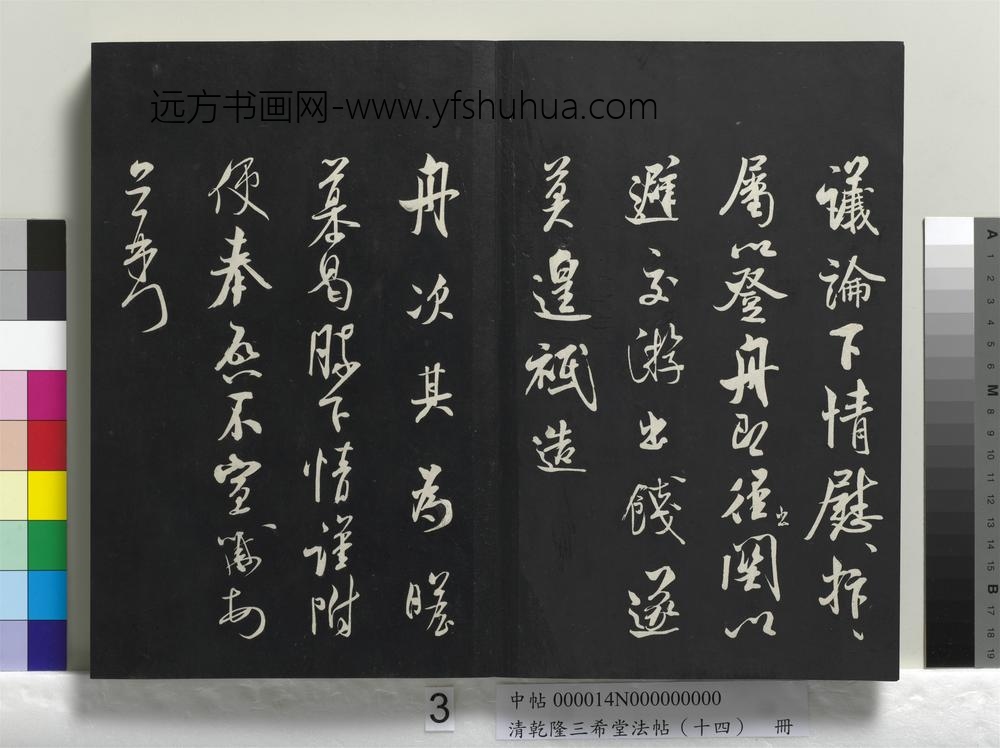 远方书画网-www.yfshuhua.com
議論下情慰抃〻
屬以登舟即徑出關以
避交游出餞遂
莫遑祗造
舟次其為瞻
慕曷勝下情謹附
便奉啓不宣
3
中帖 000014N000000000
清乾隆三希堂法帖（十四） 冊
A
1
2
3
4
5
6
M
8
9
10
11
12
13
14
15
B
17
18
19